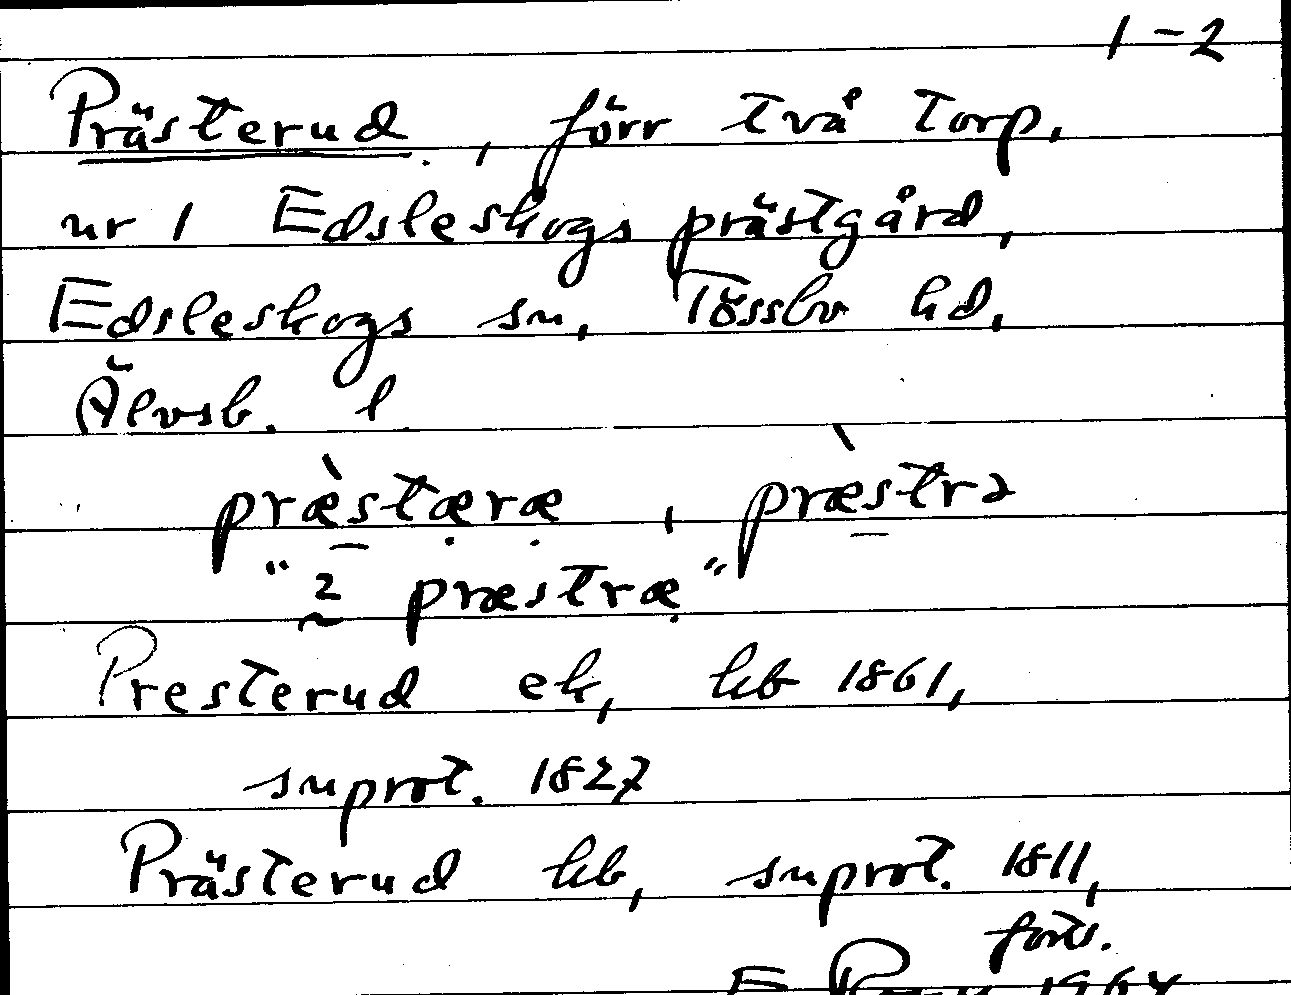 1-2
Prästerud, förr två torp,
nr 1 Edsleskogs prästgård,
Edsleskogs sn, Tössbo hd,
Älvsb. l
præ̀stæræ, præ̀strə
"2 præstræ"
~
Presterud ek, kb 1861,
snprot. 1827
Prästerud kb, snprot. 1811,
forts.